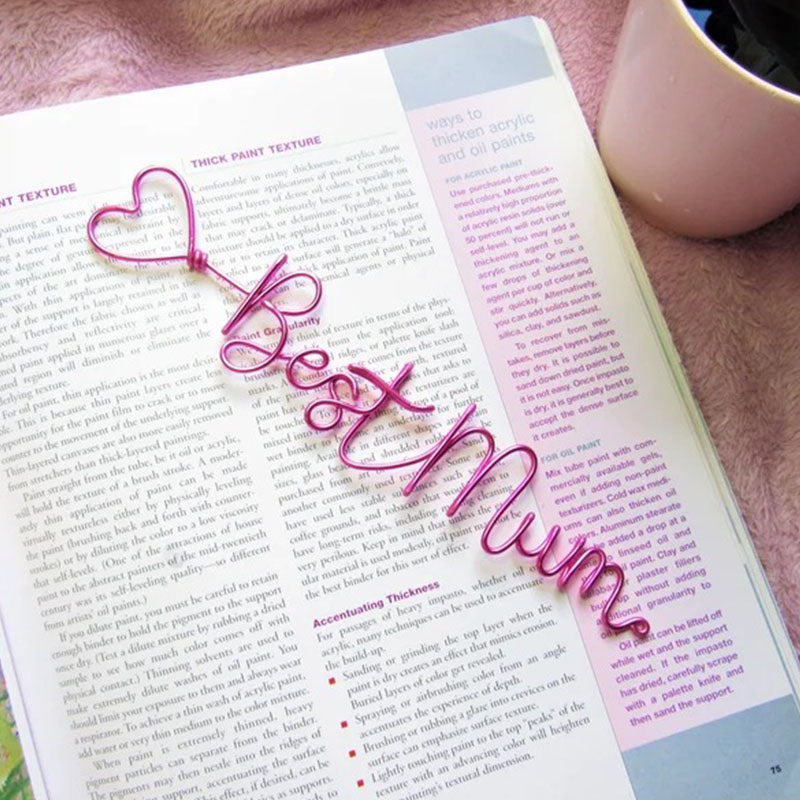 NT TEXTURE
painting can seem
But plain, flat
a sense of
the degree of
pects of the art
application allow
With thin applications
of the support is largely retained in
work. Therefore the fabric chosen as
absorbency and reflectivity are critical
paint applied in numerous glazes over a
ured region will diminish or obliterate the
derlying texture.
For oil paint, thin application is the most
ple. This is because thin paint layers create less
opportunity for the paint film to crack or to
counter to the movement of the underlying support
Thin-layered canvases are also more easily removed
from stretchers than thick-layered paintings.
Paint straight from the tube, be it oil or acrylic,
will hold the texture of a brush stroke. A moder-
ately thin application of paint can be made
virtually textureless either by physically leveling
the paint (brushing back and forth with counter-
strokes) or by diluting the color to a low viscosity
that self-levels. (One of the attractions of house
paint to the abstract painters of the mid-twentieth
century was its self-leveling quality—so different
from artists' oil paints.)
If you dilute paint, you must be careful to retain
enough binder to hold the pigment to the support
once dry. (Test a dilute mixture by rubbing a dried
sample to see how much color comes off with
physical contact.) Thinning solvents are used to
make extremely dilute washes of oil paint. You
should limit your exposure to them and always wear
a respirator. To achieve a thin wash of acrylic paint,
add water or very thin medium to the color mixture.
When paint is extremely thinned, heavy
pigment particles can separate from the binder.
The pigments may then nestle into the ridges of
the support, accentuating the surface
This effect, if desired, can be
such as supports.
THICK PAINT TEXTURE
Comfortable in many thicknesses, acrylics allow
adventuresome applications of paint. Conversely,
layers and layers of dense oil colors, especially on
fabric supports, ultimately become a brittle mass
that may crack or delaminate. Typically, a thick
texture should be applied to a dry surface in order
to its character. Thick acrylic paint
surface will generate a "halo" of
application of paint.
can be chemical agents or physical
Paint Granularity
We think of texture in terms of the phys-
the application tool.
ridges, or palette knife slash
comes from the texture.
texturizers are
that asks to
a pool of
as different shapes
sites, glass beads
purchased from art Some
another commonly used texturizer. Some an
have used less stable substances such as
coffee grounds, and tobacco
have long-term risks, including
very perilous. Keep in mind that when
ular material is used modestly, oil paint can
the best binder for this sort of effect.
Accentuating Thickness
For passages of heavy impasto, whether oil or
acrylic, many techniques can be used to accentuate
the build-up.
Sanding or grinding the top layer when the
paint is dry creates an effect that mimics erosion.
Buried layers of color get revealed.
Spraying or airbrushing color from an angle
accentuates the experience of depth.
Brushing or rubbing a glaze into crevices on the
surface can emphasize surface texture.
Lightly touching paint to the top "peaks" of the
texture with an advancing color will heighten
painting's textural dimension.
Best Mum
ways to
thicken acrylic
and oil paints
FOR ACRYLIC PAINT
Use purchased pre-thick-
ened colors. Mediums with
a relatively high proportion
of acrylic resin solids (over
50 percent) will not run or
self-level. You may add a
thickening agent to an
acrylic mixture. Or mix a
few drops of thickening
agent per cup of color and
stir quickly. Alternatively,
you can add solids such as
silica, clay, and sawdust.
To recover from mis-
takes, remove layers before
they dry. It is possible to
sand down dried paint, but
it is not easy. Once impasto
is dry, it is generally best to
accept the dense surface
it creates.
FOR OIL PAINT
Mix tube paint with com-
mercially available gels,
even if adding non-paint
texturizers. Cold wax medi-
ums can also thicken oil
colors. Aluminum stearate
added a drop at a
linseed oil and
paint. Clay and
plaster fillers
build up without adding
additional granularity to
Oil paint can be lifted off
while wet and the support
cleaned. If the impasto
has dried, carefully scrape
with a palette knife and
then sand the support.
75